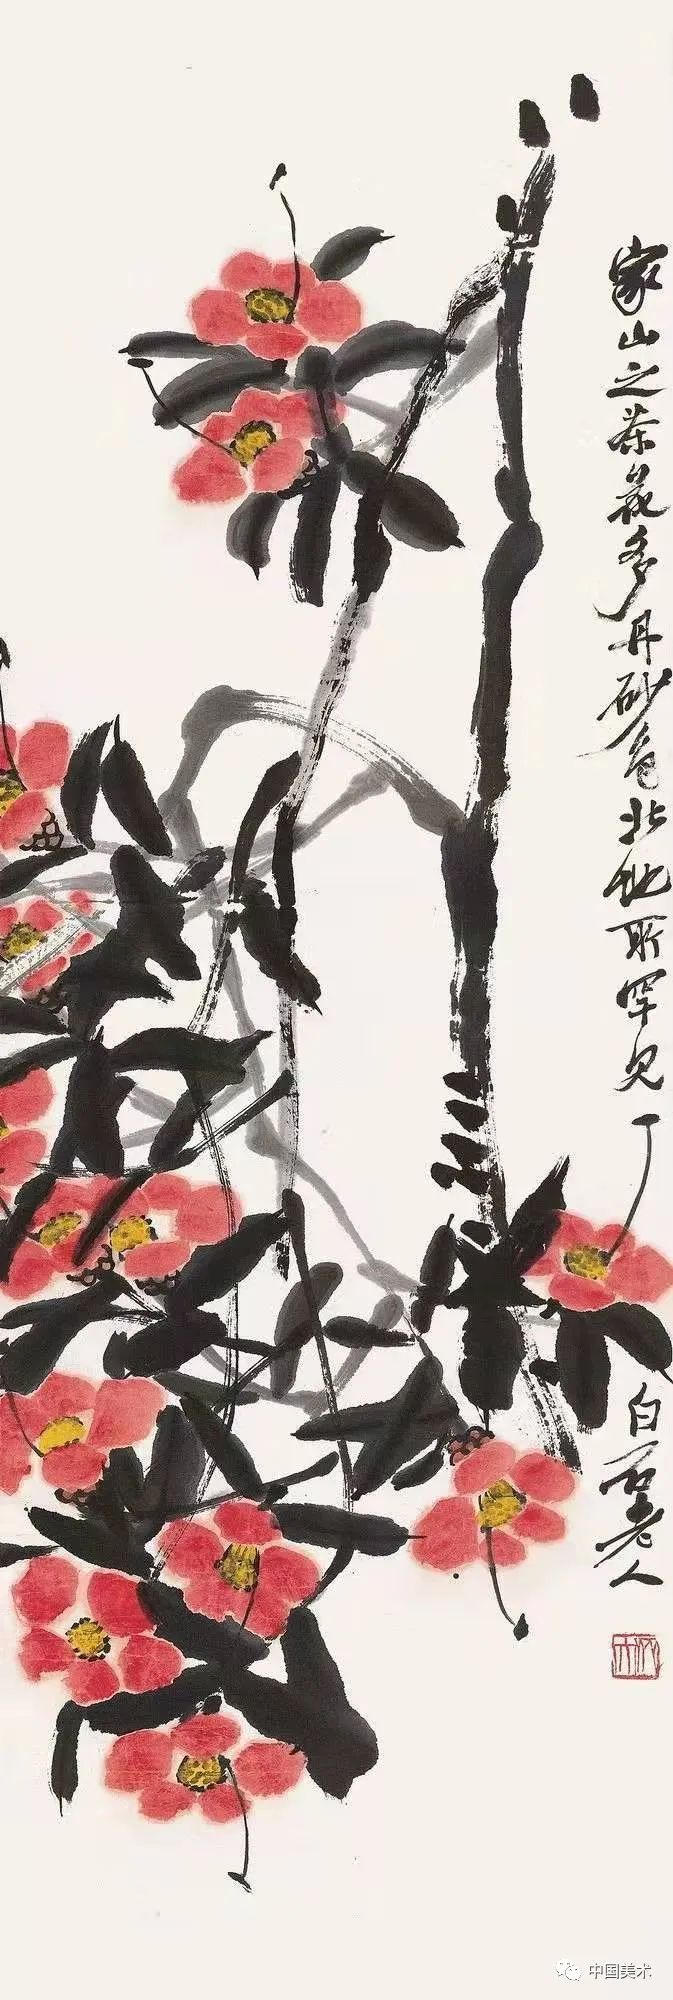 家山之茶花多丹砂色北地所罕见
白石老人
中国美术